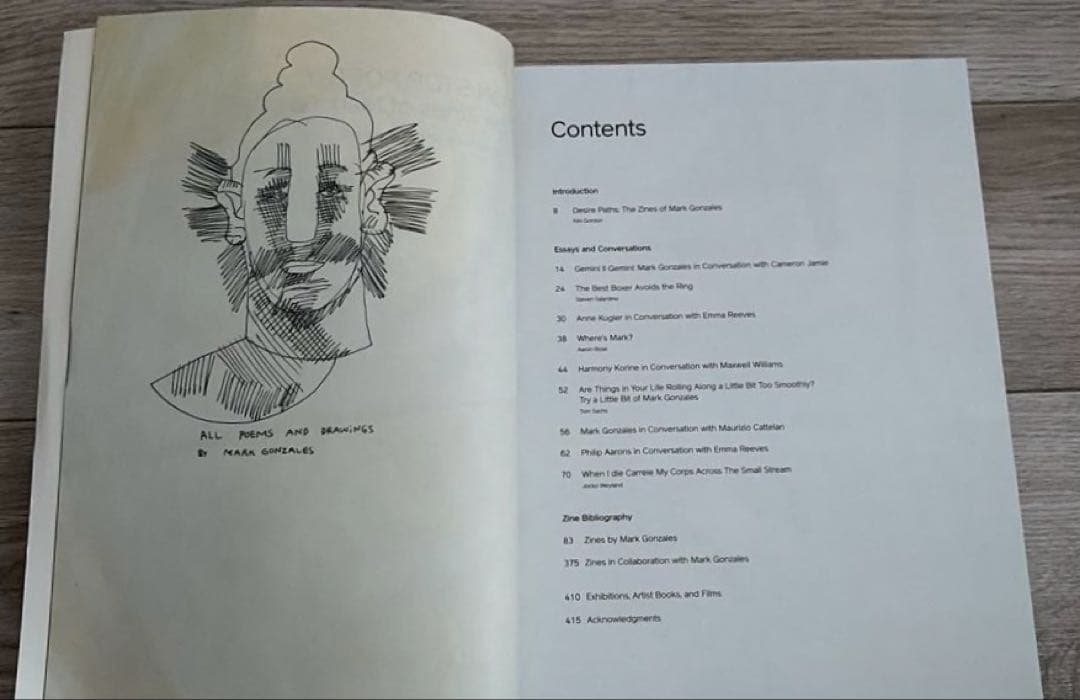 ALL POEMS AND DRAWINGS
BY MARK GONZALES
Contents
Introduction
8 Desire Paths: The Zines of Mark Gonzales
Kim Gordon
Essays and Conversations
14 Gemini II Gemini: Mark Gonzales in Conversation with Cameron Jamie
24 The Best Boxer Avoids the Ring
30 Anne Kugler in Conversation with Emma Reeves
38 Where's Mark?
Aaron Rose
44 Harmony Korine in Conversation with Maxwell Williams
52 Are Things in Your Life Rolling Along a Little Bit Too Smoothly?
Try a Little Bit of Mark Gonzales
Tom Sachs
56 Mark Gonzales in Conversation with Maurizio Cattelan
62 Philip Aarons in Conversation with Emma Reeves
70 When I die Carreie My Corps Across The Small Stream
Jocko Weyland
Zine Bibliography
83 Zines by Mark Gonzales
375 Zines in Collaboration with Mark Gonzales
410 Exhibitions, Artist Books, and Films
415 Acknowledgments